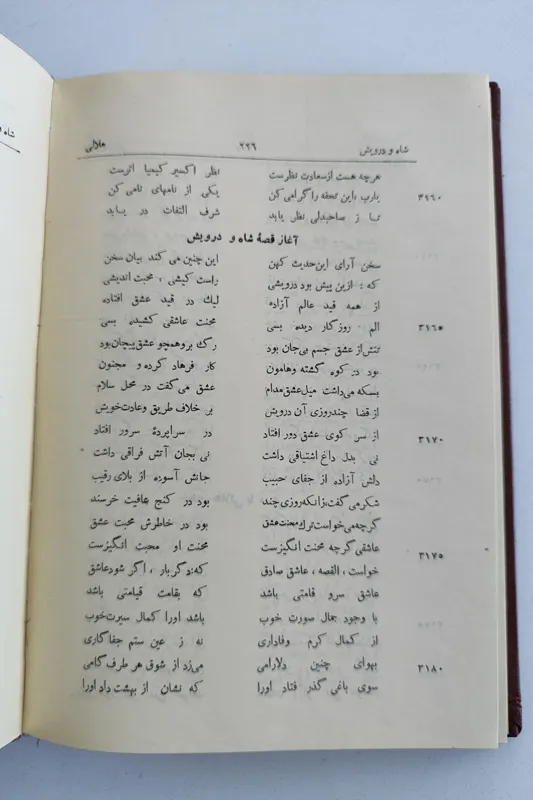 شاه و درویش ۲۲۶ هلالی
هرچه هست از سعادت نظرست نظر اکسیر کیمیا اثرست
۳۱۶۰ یارب، این تحفه را گرامی کن یکی از نامهای نامی کن
تا ز صاحبدلی نظر یابد شرف التفات در یابد
آغاز قصهٔ شاه و درویش
سخن آرای این حدیث کهن این چنین می کند بیان سخن
که : ازین پیش بود درویشی راست کیشی ، محبت اندیشی
از همه قید عالم آزاده لیك در قید عشق افتاده
۳۱۶۵ الم روزگار دیده بسی محنت عاشقی کشیده بسی
تنش از عشق جسم بی جان بود رگ برو همچو عشق پیچان بود
بود در کوه گشته و هامون کار فرهاد کرده و مجنون
بسکه می داشت میل عشق مدام عشق می گفت در محل سلام
از قضا چند روزی آن درویش بر خلاف طریق و عادت خویش
۳۱۷۰ از سر کوی عشق دور افتاد در سراپردهٔ سرور افتاد
نی بدل داغ اشتیاقی داشت نی بجان آتش فراقی داشت
دلش آزاده از جفای حبیب جانش آسوده از بلای رقیب
شکر می گفت، زانکه روزی چند بود در کنج عافیت خرسند
گرچه می خواست ترك محنت عشق بود در خاطرش محبت عشق
۳۱۷۵ عاشقی گرچه محنت انگیزست محنت او محبت انگیزست
خواست ، القصه ، عاشق صادق که: دگر بار ، اگر شود عاشق
عاشق سرو قامتی باشد که بقامت قیامتی باشد
با وجود جمال صورت خوب باشد اورا کمال سیرت خوب
از کمال کرم وفاداری نه ز عین ستم جفا کاری
۳۱۸۰ بهوای چنین دلارامی می زد از شوق هر طرف گامی
سوی باغی گذر فتاد اورا که نشان از بهشت داد اورا